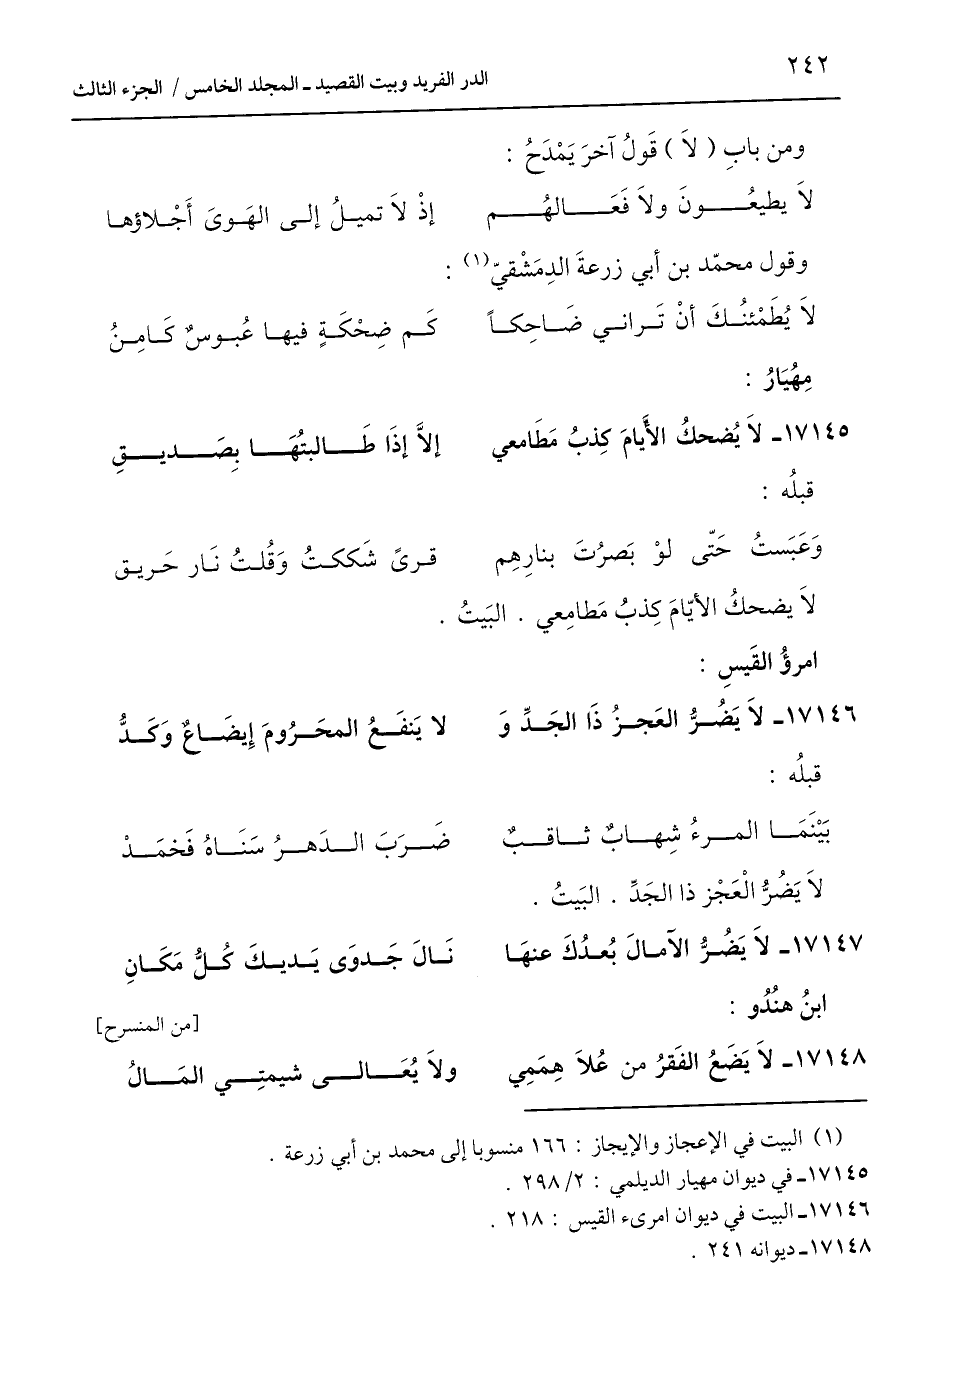 ٢٤٢
الدر الفريد وبيت القصيد ـ المجلد الخامس / الجزء الثالث
ومن بابِ ( لاَ ) قَولُ آخرَ يَمْدَحُ :
لاَ يطيعُـــونَ ولاَ فَعَـــالهُـــم إذْ لاَ تميلُ إلى الهَوىَ أَجْلاؤها
وقول محمّد بن أبي زرعةَ الدِمَشْقيّ(١) :
لاَ يُطَمْئنُكَ أنْ تَراني ضَاحِكاً كَم ضِحْكَةٍ فيها عُبوسٌ كَامِنُ
مِهْيَارُ :
١٧١٤٥ـ لاَ يُضحكُ الأَيامَ كِذبُ مَطَامعي إلاَّ إذَا طَالبتُهَا بِصَديقِ
قبلُه :
وَعَبَستُ حَتّى لوْ بَصرُتَ بنارِهِم قرىً شَككتُ وَقُلتُ نَار حَريق
لاَ يضحكُ الأيّامَ كِذبُ مَطامِعي . البَيتُ .
امرؤُ القَيسِ :
١٧١٤٦ـ لاَ يَضُرُّ العَجزُ ذَا الجَدِّ وَ لا يَنفَعُ المحَرُومَ إيضَاعٌ وَكَدُّ
قبلُه :
بَيْنَمَا المرءُ شِهابٌ ثاقبٌ ضَربَ الدَهرُ سَنَاهُ فَخمَدْ
لاَ يَضُرُّ الْعَجْز ذا الجَدِّ . البَيتُ .
١٧١٤٧ـ لاَ يَضُرُّ الآمالَ بُعدُكَ عنهَا نَالَ جَدوَى يَديكَ كُلُّ مَكَانِ
ابنُ هنُدُو :
[من المنسرح]
١٧١٤٨ـ لاَ يَضَعُ الفَقرُ من عُلاَ هِمَمِي ولاَ يُعَالى شيمتِي المَالُ
(١) البيت في الإعجاز والإيجاز : ١٦٦ منسوبا إلى محمد بن أبي زرعة .
١٧١٤٥ـ في ديوان مهيار الديلمي : ٢/ ٢٩٨ .
١٧١٤٦ـ البيت في ديوان امرىء القيس : ٢١٨ .
١٧١٤٨ـ ديوانه ٢٤١ .